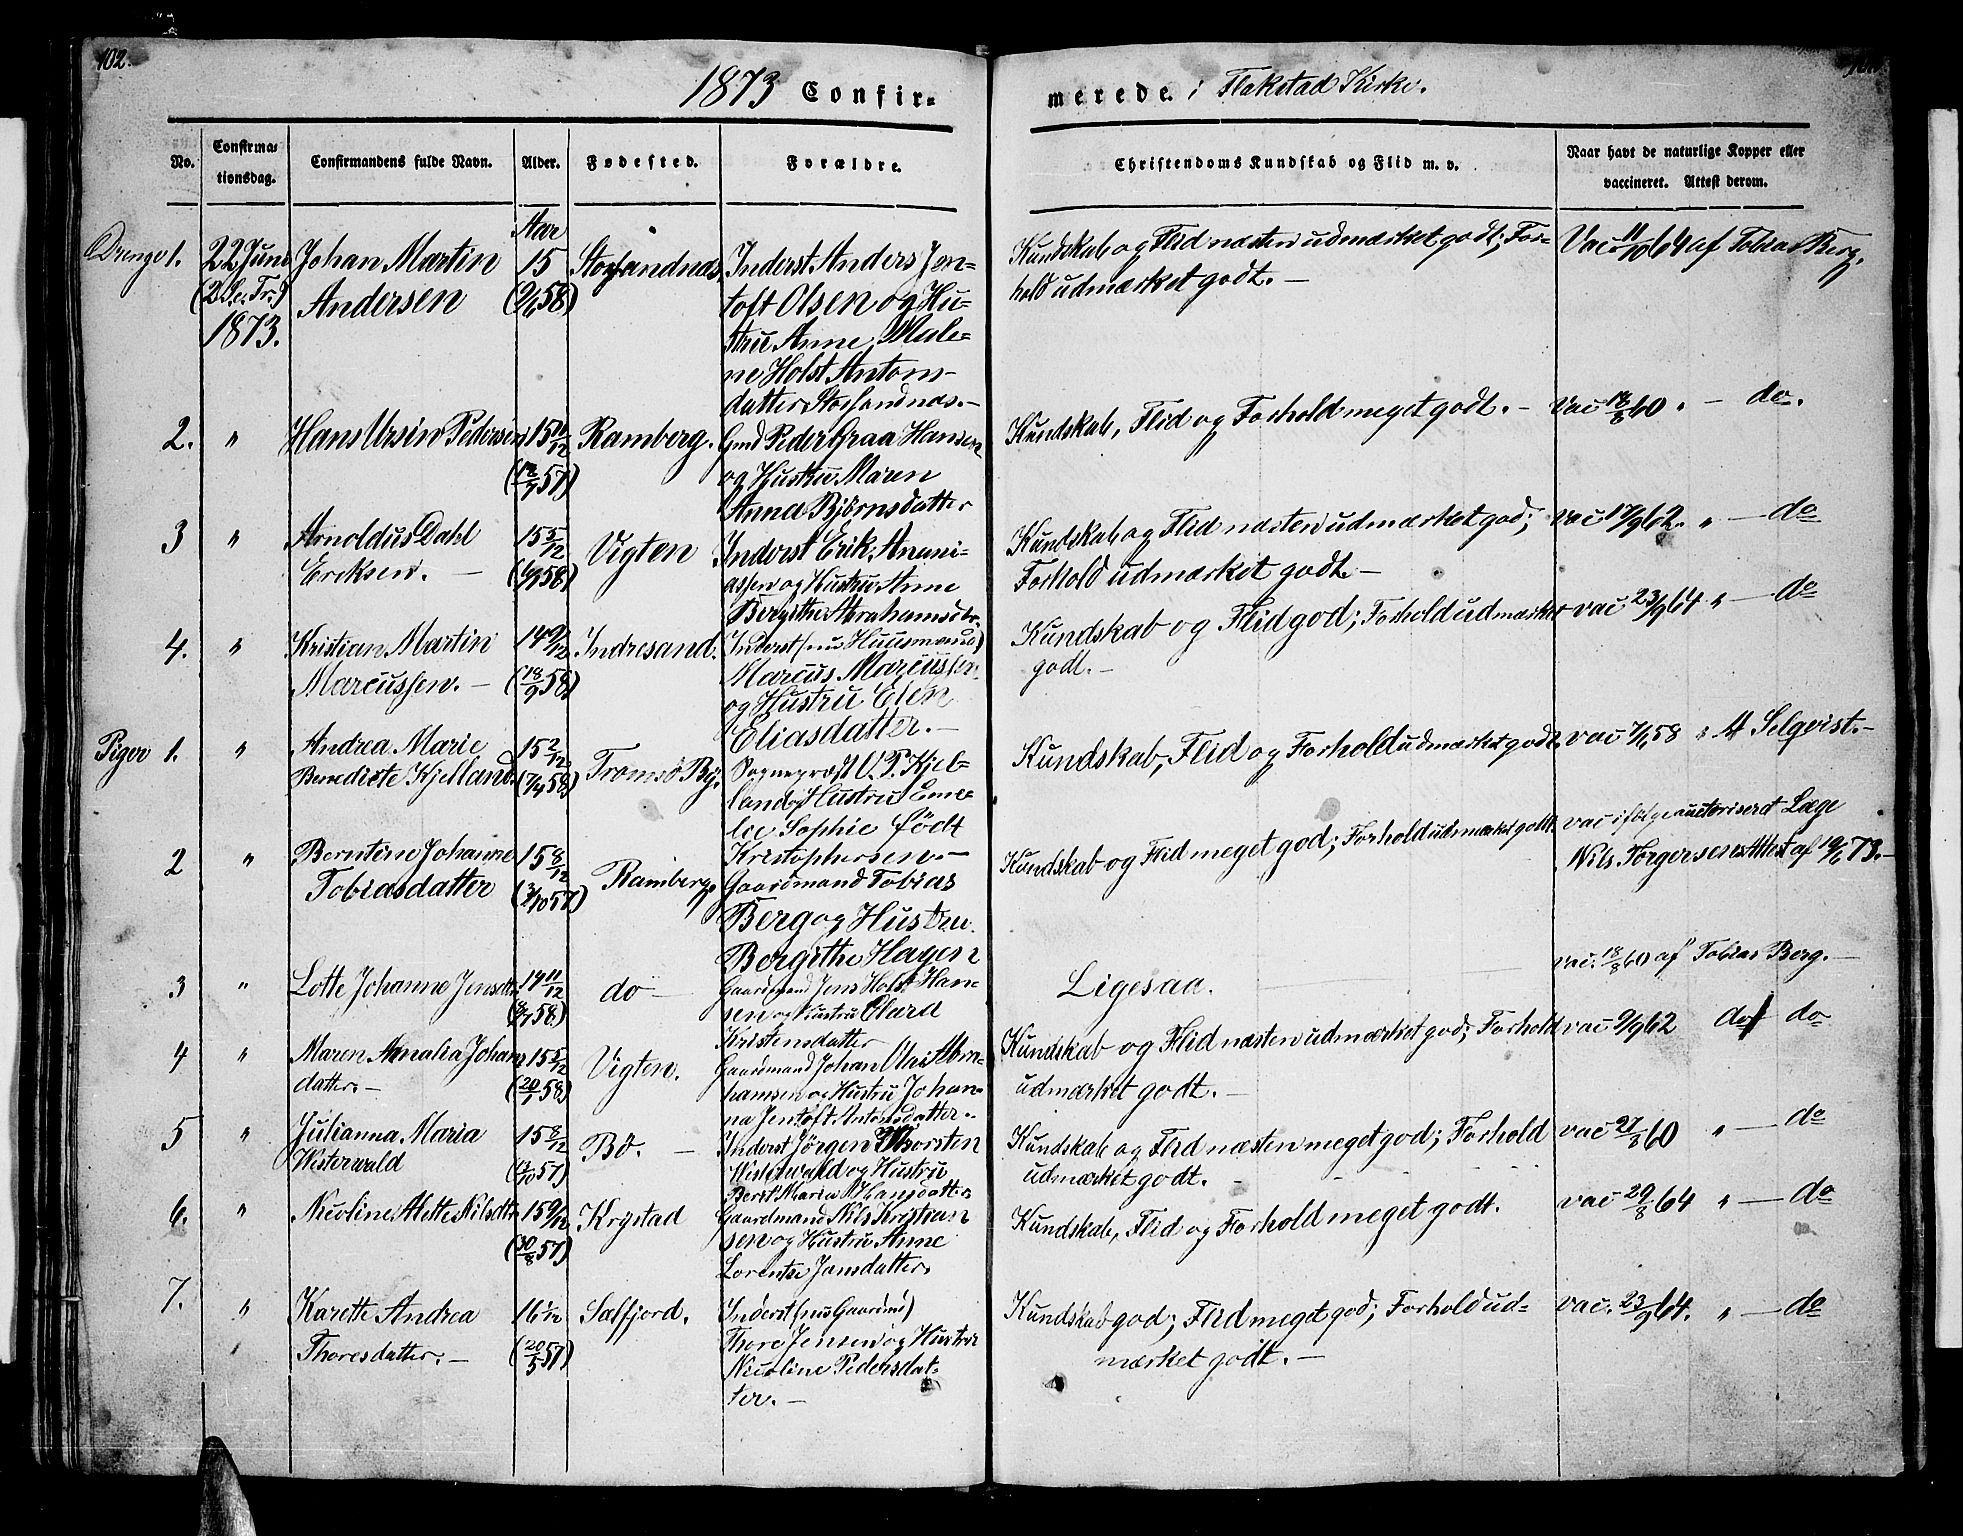 102.
1873 Confir-
merede. i Flakstad Kirke.
No.
Confirma-
tionsdag.
Confirmandens fulde Navn.
Alder.
Fødested.
Forældre.
Christendoms Kundskab og Flid m. v.
Naar havt de naturlige Kopper eller
vaccineret. Attest derom.
Drenge 1.
22 Juni
(2 S. e. Tr.)
1873.
Johan Martin
Andersen
Aar
15
Storsandnæs,
Inderst Anders Jen-
toft Olsen og Hu-
stru Anne Male-
ne Holst Antons-
datter, Storsandnæs.-
Kundskab og Flid næsten udmærket godt; For-
hold udmærket godt. -
Vac 11/10 64 af Tobias Berg.
2. " Hans Ursin Pedersen
(12/7 57)
Ramberg.
Gmd Peder Graa Hansen
og Hustru Maren
Anna Björnsdatter
Kundskab, Flid og Forhold meget godt. -
vac 18/8 60 " - do.
3 " Arnoldus Dahl
Eriksen. -
15 5/12
Vigten
Inderst Erik Anani-
assen og Hustru Anne
Bergithe Abrahamsdtr.
Kundskab og Flid næsten udmærket god;
Forhold udmærket godt -
vac 17/9 62. " - do
4. " Kristian Martin
Marcussen. -
14 9/12
(18/9 58)
Indresand.
Inderst (nu Huusmand)
Marcus Marcussen
og Hustru Elen
Eliasdatter. -
Kundskab og Flid god; Forhold udmærket
godt. -
vac 23/9 64 " - do
Piger 1. " Andrea Marie
Benedicte Kjelland
15 2/12
(7/4 58)
Tromsö By.
Sognepræst O. P. Kjel-
land og Hustru Eme-
lie Sophie födt
Kristophersen. -
Kundskab, Flid og Forhold udmærket godt.
vac 7/6 58 " M Selqvist. -
2 " Berntine Johanne
Tobiasdatter
15 8/12
(3/10 57)
Ramberg,
Gaardmand Tobias
Berg og Hustru
Bergithe Hagen
Kundskab og Flid meget god; Forhold udmærket godt.
vac ifølge auctoriseret Læge
Nils Torgersens Attest af 19/6 73. -
3 " Lotte Johanne Jensdtr
14 11/12
(8/7 58.)
do -
Gaardmand Jens Holst Han-
sen og Hustru Elard
Kristensdatter
Ligesaa.
vac. 18/8 60 af Tobias Berg. -
4 " Maren Amalia Johans
datter. -
15 5/12
(20/1 58)
Vigten.
Gaardmand Johan Olai Abra-
hamsen og Hustru Johan-
na Jentoft Antonsdatter.
Kundskab og Flid næsten udmærket god; Forhold
udmærket godt. -
vac 9/9 62 do do
5 " Julianna Maria
Westerwald
15 8/12
(13/10 57)
Bö. -
Inderst Jörgen Thorsten
Westerwald og Hustru
Berit Maria Hansdatter
Kundskab og Flid næsten meget god; Forhold
udmærket godt. -
vac 27/8 60 " - do
6. " Nicoline Alette Nilsdtr
15 9/12
(30/8 57)
Krystad
Gaardmand Nils Kristian
sen og Hustru Anne
Lorentse Jansdatter,
Kundskab, Flid og Forhold meget godt.
vac 29/8 64 " - do
7. " Karette Andrea
Thoresdatter. -
16 1/12
(20/5 57)
Selfjord.
Inderst (nu Gaardmd)
Thore Jensen og Hustru
Nicoline Pedersdat-
ter. -
Kundskab god; Flid meget god; Forhold ud-
mærket godt. -
vac. 23/9 64. " - do